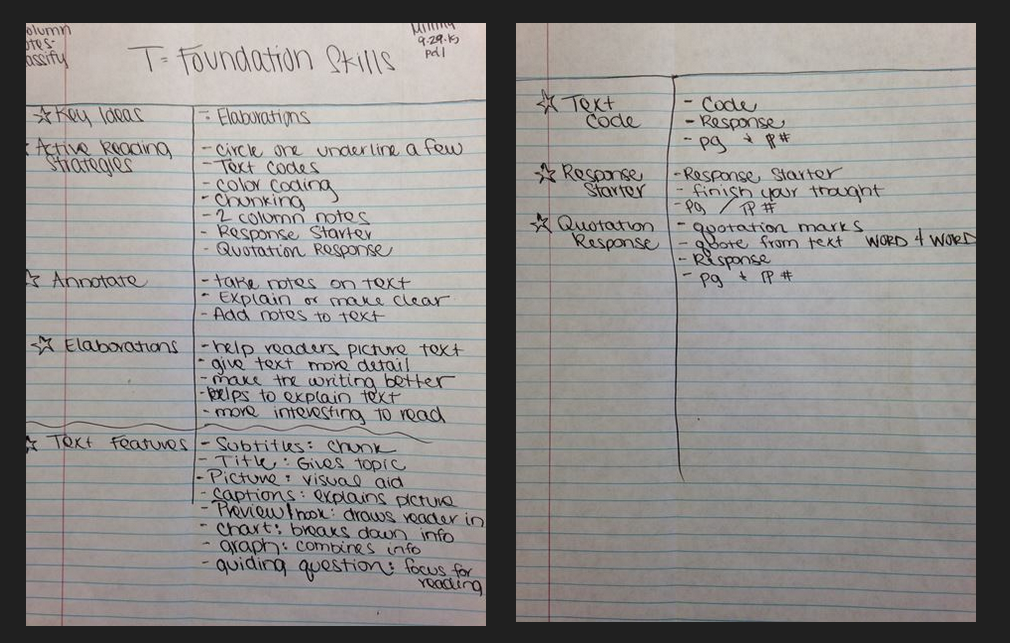 olumn
otes-
assify
9-29-15
pd1
T= Foundation Skills
☆ Key Ideas
= Elaborations
Active Reading
Strategies
- circle one underline a few
- Text codes
- color coding
- Chunking
- 2 column notes
- Response Starter
- Quotation Response
☆ Annotate
- take notes on text
- Explain or make clear
- Add notes to text
☆ Elaborations
- help readers picture text
- give text more detail
- make the writing better
- helps to explain text
- more interesting to read
☆ Text Features
- Subtitles: chunk
- Title: Gives topic
- Picture: visual aid
- captions: explains picture
- Preview/hook: draws reader in
- chart: breaks down info
- graph: combines info
- guiding question: focus for
reading
☆ Text
Code
- Code
- Response
- pg + P#
☆ Response
Starter
- Response Starter
- finish your thought
- pg / P#
☆ Quotation
Response
- quotation marks
- quote from text WORD 4 WORD
- Response
- pg + P#